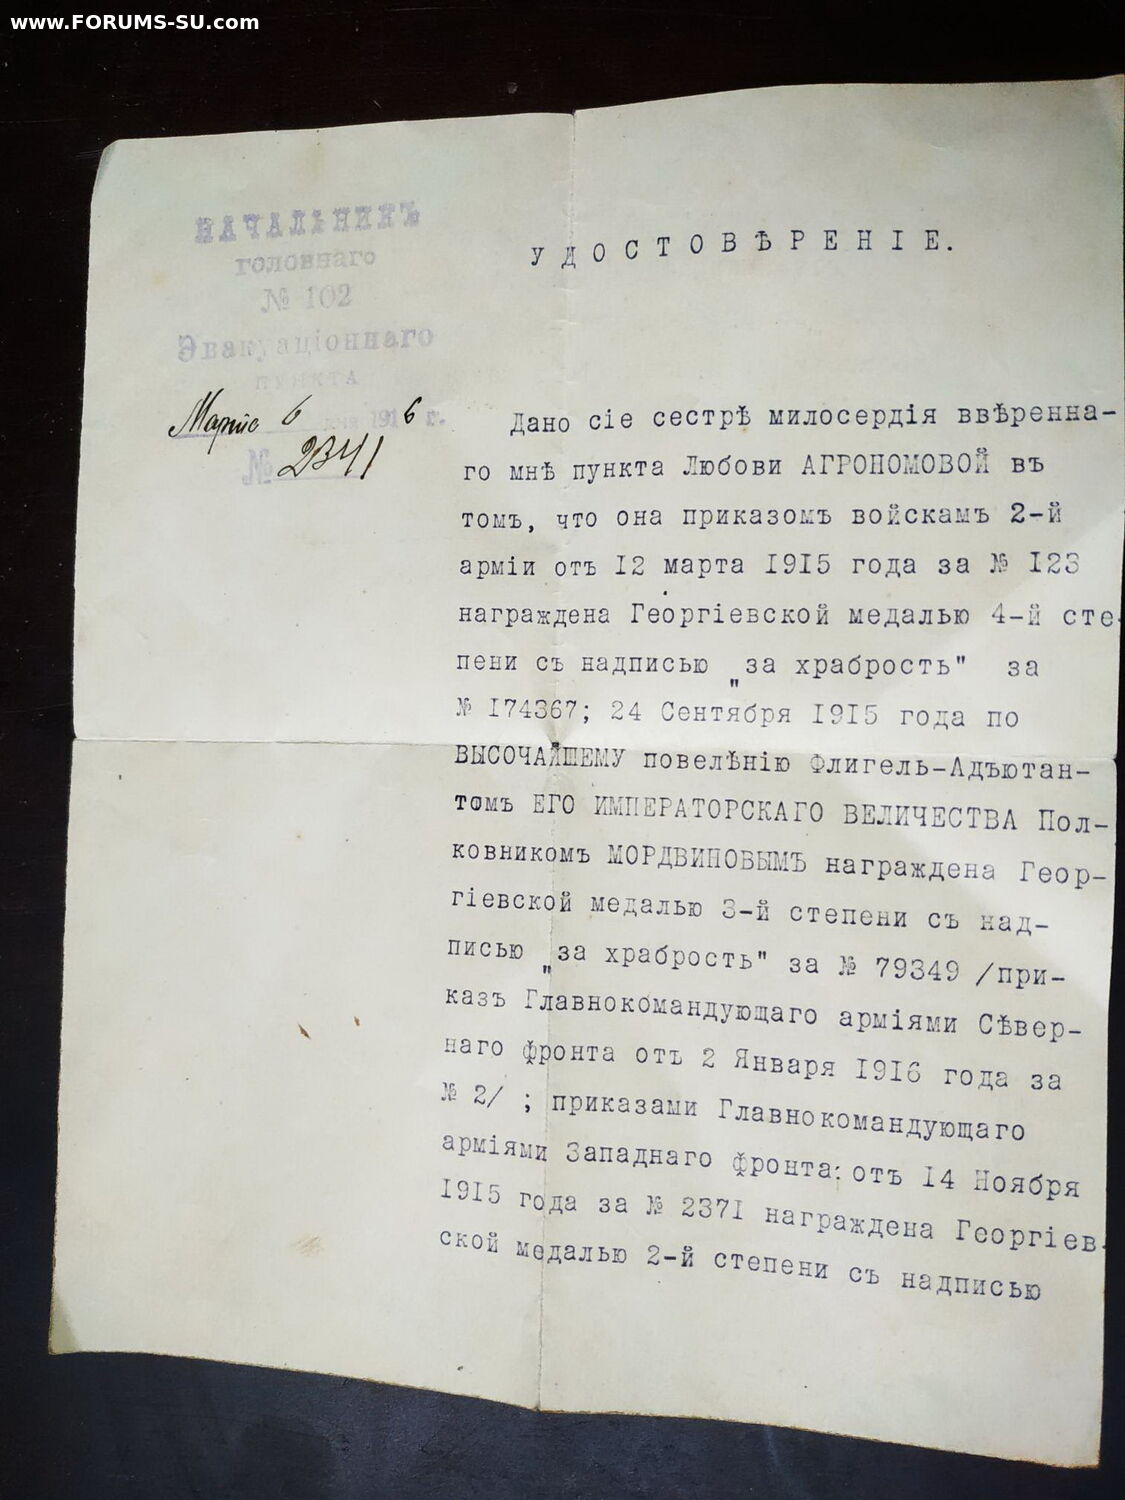 www.FORUMS-SU.com
НАЧАЛЬНИКЪ
головнаго
№ 102
Эвакуаціоннаго
ПУНКТА
Марта 6 дня 1916 г.
№ 2341
УДОСТОВѢРЕНІЕ.
Дано сіе сестрѣ милосердія ввѣренна-
го мнѣ пункта Любови АГРОНОМОВОЙ въ
томъ, что она приказомъ войскамъ 2-й
арміи отъ 12 марта 1915 года за № 123
награждена Георгіевской медалью 4-й сте-
пени съ надписью „за храбрость" за
№ 174367; 24 Сентября 1915 года по
ВЫСОЧАЙШЕМУ повелѣнію Флигель-Адъютан-
томъ ЕГО ИМПЕРАТОРСКАГО ВЕЛИЧЕСТВА Пол-
ковникомъ МОРДВИНОВЫМЪ награждена Геор-
гіевской медалью 3-й степени съ над-
писью „за храбрость" за № 79349 /при-
казъ Главнокомандующаго арміями Сѣвер-
наго фронта отъ 2 Января 1916 года за
№ 2/ ; приказами Главнокомандующаго
арміями Западнаго фронта: отъ 14 Ноября
1915 года за № 2371 награждена Георгіев-
ской медалью 2-й степени съ надписью